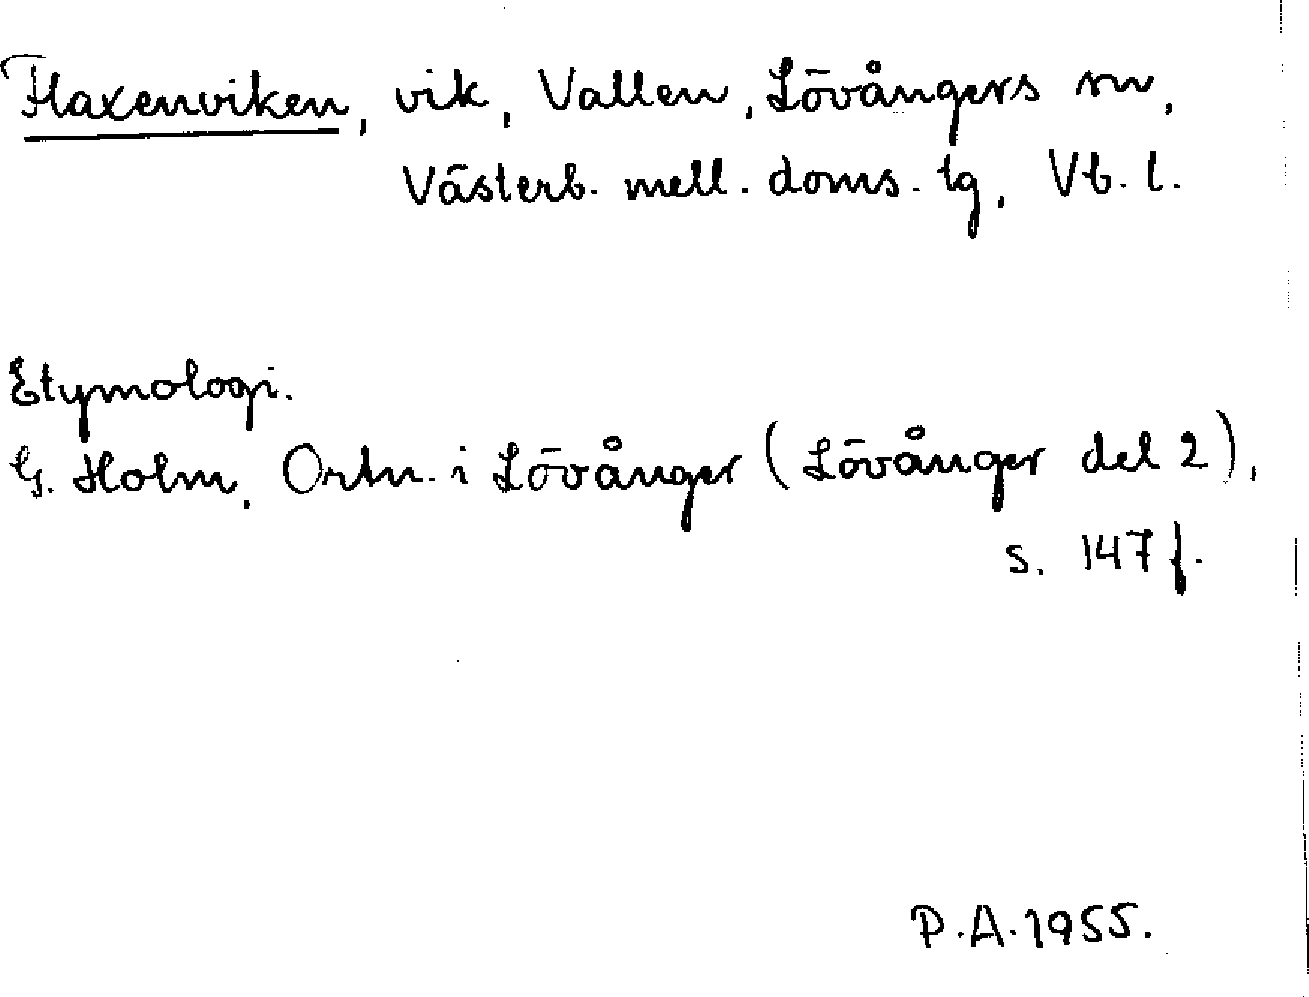 Flaxenviken, vik, Vallen, Lövångers sn,
Västerb. mell. doms. tg, Vb. l.
Etymologi.
G. Holm, Ortn. i Lövånger (Lövånger del 2),
s. 147 f.
P.A. 1955.